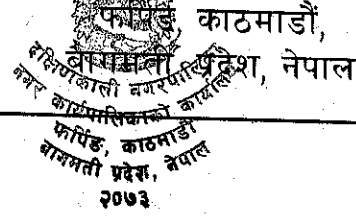 फर्पिङ काठमाडौं,
बागमती प्रदेश, नेपाल
दक्षिणकाली नगरपालिका
नगर कार्यपालिकाको कार्यालय
फर्पिङ, काठमाडौं
बागमती प्रदेश, नेपाल
२०७३